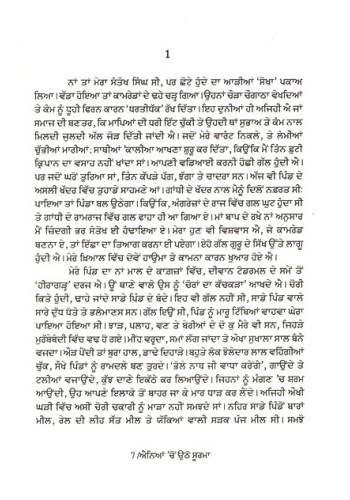 1
ਨਾਂ ਤਾਂ ਮੇਰਾ ਸੰਤੋਖ ਸਿੰਘ ਸੀ, ਪਰ ਛੋਟੇ ਹੁੰਦੇ ਦਾ ਆੜੀਆਂ 'ਸੋਖਾ' ਪਕਾਅ
ਲਿਆ। ਵੱਡਾ ਹੋਇਆ ਤਾਂ ਕਾਮਰੇਡਾਂ ਦੇ ਢਹੇ ਚੜ੍ਹ ਗਿਆ। ਉਹਨਾਂ ਚੌੜਾ ਚੌਗਾਠਾ ਵੇਖਦਿਆਂ
ਤੇ ਕੰਮ ਨੂੰ ਧੂਹੀ ਫਿਰਨ ਕਾਰਨ 'ਧਰਤੀਧੱਕ' ਰੱਖ ਦਿੱਤਾ। ਇਹ ਦੁਨੀਆਂ ਹੀ ਅਜਿਹੀ ਐ ਜਾਂ
ਸਮਾਜ ਦੀ ਬਣਤਰ, ਕਿ ਮਾਪਿਆਂ ਦੀ ਧਰੀ ਇੱਟ ਚੁੱਕੀ ਤੇ ਉਹਦੀ ਥਾਂ ਸੁਭਾਅ ਦੇ ਕੰਮ ਨਾਲ
ਮਿਲਦੀ ਜੁਲਦੀ ਅੱਲ ਜੋੜ ਦਿੱਤੀ ਜਾਂਦੀ ਐ। ਜਦੋਂ ਮੇਰੇ ਵਾਰੰਟ ਨਿਕਲੇ, ਤੇ ਲੰਮੀਆਂ
ਚੁੱਭੀਆਂ ਮਾਰੀਆਂ; ਸਾਥੀਆਂ 'ਕਾਲੀਆ' ਆਖਣਾ ਸ਼ੁਰੂ ਕਰ ਦਿੱਤਾ, ਕਿਉਂਕਿ ਮੈਂ ਤਿੰਨ ਫੁੱਟੀ
ਕ੍ਰਿਪਾਨ ਦਾ ਵਸਾਹ ਨਹੀਂ ਖਾਂਦਾ ਸਾਂ। ਆਪਣੀ ਵਡਿਆਈ ਕਰਨੀ ਹੋਛੀ ਗੱਲ ਹੁੰਦੀ ਐ।
ਪਰ ਜਦੋਂ ਘਰੋਂ ਤੁਰਿਆ ਸਾਂ, ਤਿੰਨ ਕੱਪੜੇ ਪੱਗ, ਝੱਗਾ ਤੇ ਚਾਦਰਾ ਸਨ। ਅੱਜ ਵੀ ਪਿੰਡ ਦੇ
ਅਸਲੀ ਖੱਦਰ ਵਿੱਚ ਤੁਹਾਡੇ ਸਾਹਮਣੇ ਆਂ। ਗਾਂਧੀ ਦੇ ਖੱਦਰ ਨਾਲ ਮੈਨੂੰ ਦਿਲੋਂ ਨਫ਼ਰਤ ਸੀ:
ਪਾਇਆ ਤਾਂ ਪਿੰਡਾ ਬਲ ਉਠੇਗਾ। ਕਿਉਂਕਿ, ਅੰਗਰੇਜ਼ਾਂ ਦੇ ਰਾਜ ਵਿੱਚ ਗਲ ਘੁਟ ਹੁੰਦਾ ਸੀ
ਤੇ ਗਾਂਧੀ ਦੇ ਰਾਮਰਾਜ ਵਿੱਚ ਗਲ ਫਾਹਾ ਹੀ ਆ ਗਿਆ ਏ। ਮਾਂ ਬਾਪ ਦੇ ਰਖੇ ਨਾਂ ਅਨੁਸਾਰ
ਮੈਂ ਜ਼ਿੰਦਗੀ ਭਰ ਸੰਤੋਖ ਈ ਹੰਢਾਇਆ ਏ। ਮੇਰਾ ਹੁਣ ਵੀ ਵਿਸ਼ਵਾਸ ਐ, ਜੇ ਕਾਮਰੇਡ
ਬਣਨਾ ਏ, ਤਾਂ ਇੱਛਾ ਦਾ ਤਿਆਗ ਕਰਨਾ ਈ ਪਏਗਾ। ਏਹੋ ਗੱਲ ਗੁਰੂ ਦੇ ਸਿੱਖ ਉੱਤੇ ਲਾਗੂ
ਹੁੰਦੀ ਐ। ਮੇਰੇ ਖ਼ਿਆਲ ਵਿੱਚ ਦੋਵੇਂ ਹਾਉਮਾ ਤੇ ਕਾਮਨਾ ਕਾਰਨ ਖੁਆਰ ਹੋਏ ਐ।
ਮੇਰੇ ਪਿੰਡ ਦਾ ਨਾਂ ਮਾਲ ਦੇ ਕਾਗਜ਼ਾਂ ਵਿੱਚ, ਦੀਵਾਨ ਟੋਡਰਮਲ ਦੇ ਸਮੇਂ ਤੋਂ
'ਹੀਰਾਗੜ੍ਹ' ਦਰਜ ਐ। ਉਂ ਥਾਣੇ ਵਾਲੇ ਉਸ ਨੂੰ 'ਚੋਰਾਂ ਦਾ ਕੱਚਕੜਾ' ਆਖਦੇ ਐ। ਚੋਰੀ
ਕਿਤੇ ਹੁੰਦੀ, ਢਾਹੇ ਜਾਂਦੇ ਸਾਡੇ ਪਿੰਡ ਦੇ ਬੰਦੇ। ਇਹ ਵੀ ਗੱਲ ਨਹੀਂ ਸੀ, ਸਾਡੇ ਪਿੰਡ ਵਾਲੇ
ਸਾਰੇ ਦੁੱਧ ਧੋਤੇ ਤੇ ਭਲੇਮਾਣਸ ਸਨ। ਗੱਲ ਇਉਂ ਸੀ, ਪਿੰਡ ਨੂੰ ਮਾਰੂ ਟਿੱਬਿਆਂ ਵਾਹਵਾ ਘੇਰਾ
ਪਾਇਆ ਹੋਇਆ ਸੀ। ਝਾੜ, ਪਲਾਹ, ਵਣ ਤੇ ਬੇਰੀਆਂ ਦੇ ਦੋ ਕੁ ਮੈਰੇ ਵੀ ਸਨ, ਜਿਹੜੇ
ਮੁਰੱਬੇਬੰਦੀ ਵਿੱਚ ਵਢ ਹੋ ਗਏ। ਮੀਂਹ ਵਰ੍ਹਦਾ, ਸਮਾਂ ਲੱਗ ਜਾਂਦਾ ਤੇ ਔਖਾ ਸੁਖਾਲਾ ਸਾਲ ਬੰਨੇ
ਵਜਦਾ। ਔੜ ਪੈਂਦੀ ਤਾਂ ਬੁਰਾ ਹਾਲ, ਡਾਢੇ ਦਿਹਾੜੇ। ਬਹੁਤੇ ਲੋਕ ਝੋਲੇਦਾਰ ਲਾਲ ਵਹਿੰਗੀਆਂ
ਚੁੱਕ, ਸੌਖੇ ਪਿੰਡਾਂ ਨੂੰ ਰਾਮਦਲੇ ਬਣ ਤੁਰਦੇ। 'ਭੋਲੇ ਨਾਥ ਜੀ ਵਾਧਾ ਕਰੇਂਗੇ', ਗਾਉਂਦੇ ਤੇ
ਟਲੀਆਂ ਵਜਾਉਂਦੇ, ਕੁੱਝ ਦਾਣੇ ਇਕੱਠੇ ਕਰ ਲਿਆਉਂਦੇ। ਜਿਹਨਾਂ ਨੂੰ ਮੰਗਣ 'ਚ ਸ਼ਰਮ
ਆਉਂਦੀ, ਉਹ ਆਪਣੇ ਇਲਾਕੇ ਤੋਂ ਬਾਹਰ ਜਾ ਕੇ ਮਾਰ ਧਾੜ ਕਰ ਲੈਂਦੇ। ਅਜਿਹੀ ਔਖੀ
ਘੜੀ ਵਿੱਚ ਅਸੀਂ ਚੋਰੀ ਚਕਾਰੀ ਨੂੰ ਮਾੜਾ ਨਹੀਂ ਸਮਝਦੇ ਸਾਂ। ਨਹਿਰ ਸਾਡੇ ਪਿੰਡੋਂ ਬਾਰਾਂ
ਮੀਲ, ਰੇਲ ਦੀ ਲੀਹ ਸੱਤ ਮੀਲ ਤੇ ਯੱਕਿਆਂ ਵਾਲੀ ਸੜਕ ਪੰਜ ਮੀਲ ਸੀ। ਸਮਝੋ
7 /ਐਨਿਆਂ 'ਚੋਂ ਉਠੋ ਸੂਰਮਾ